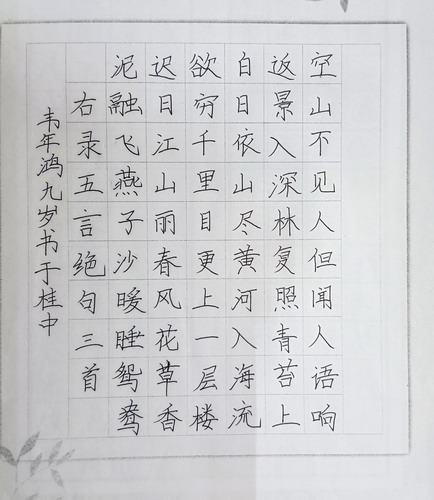 空山不见人但闻人语响
返景入深林复照青苔上
白日依山尽黄河入海流
欲穷千里目更上一层楼
迟日江山丽春风花草香
泥融飞燕子沙暖睡鸳鸯
右录五言绝句三首
韦年鸿九岁书于桂中